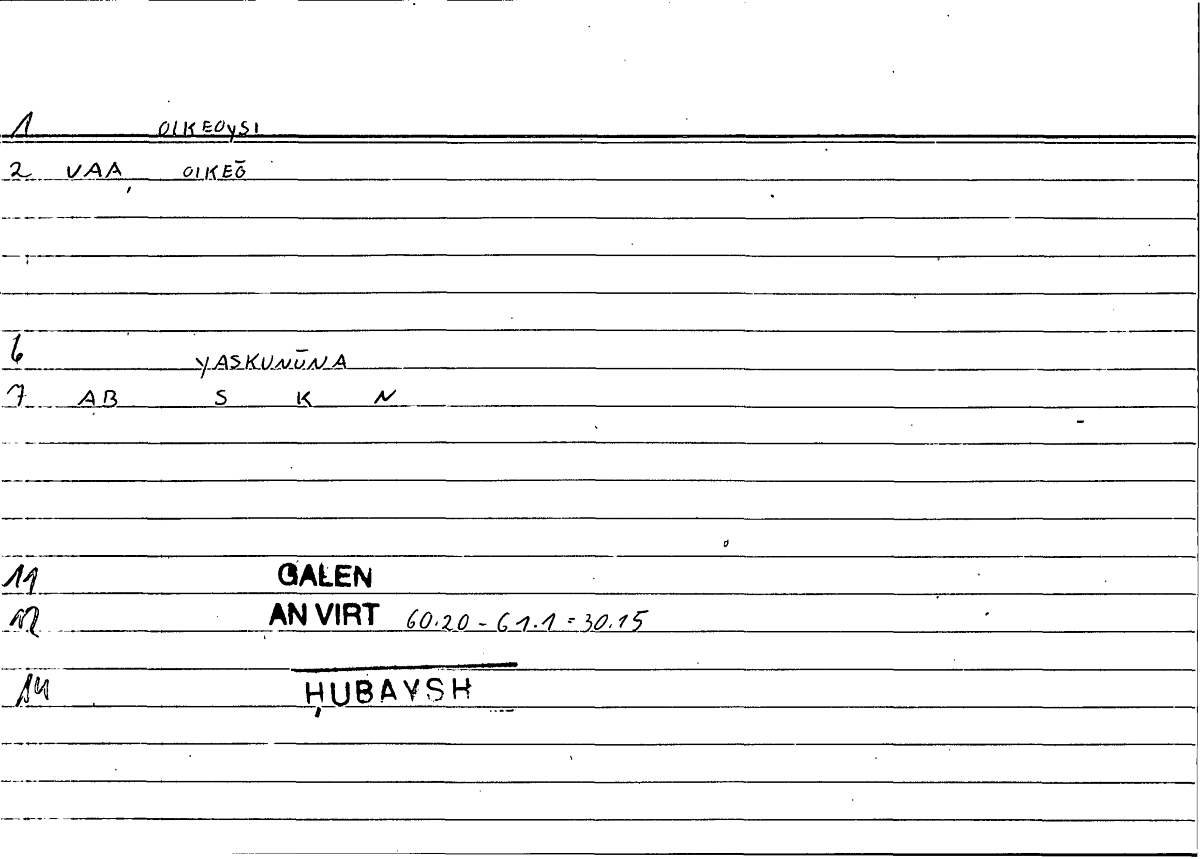 1 OIKEOYSI
2 VAA, OIKEŌ
6 YASKUNŪNA
7 AB S K N
11 GALEN
12 AN VIRT 60.20 - 61.1 = 30.15
14 ḤUBAYSH